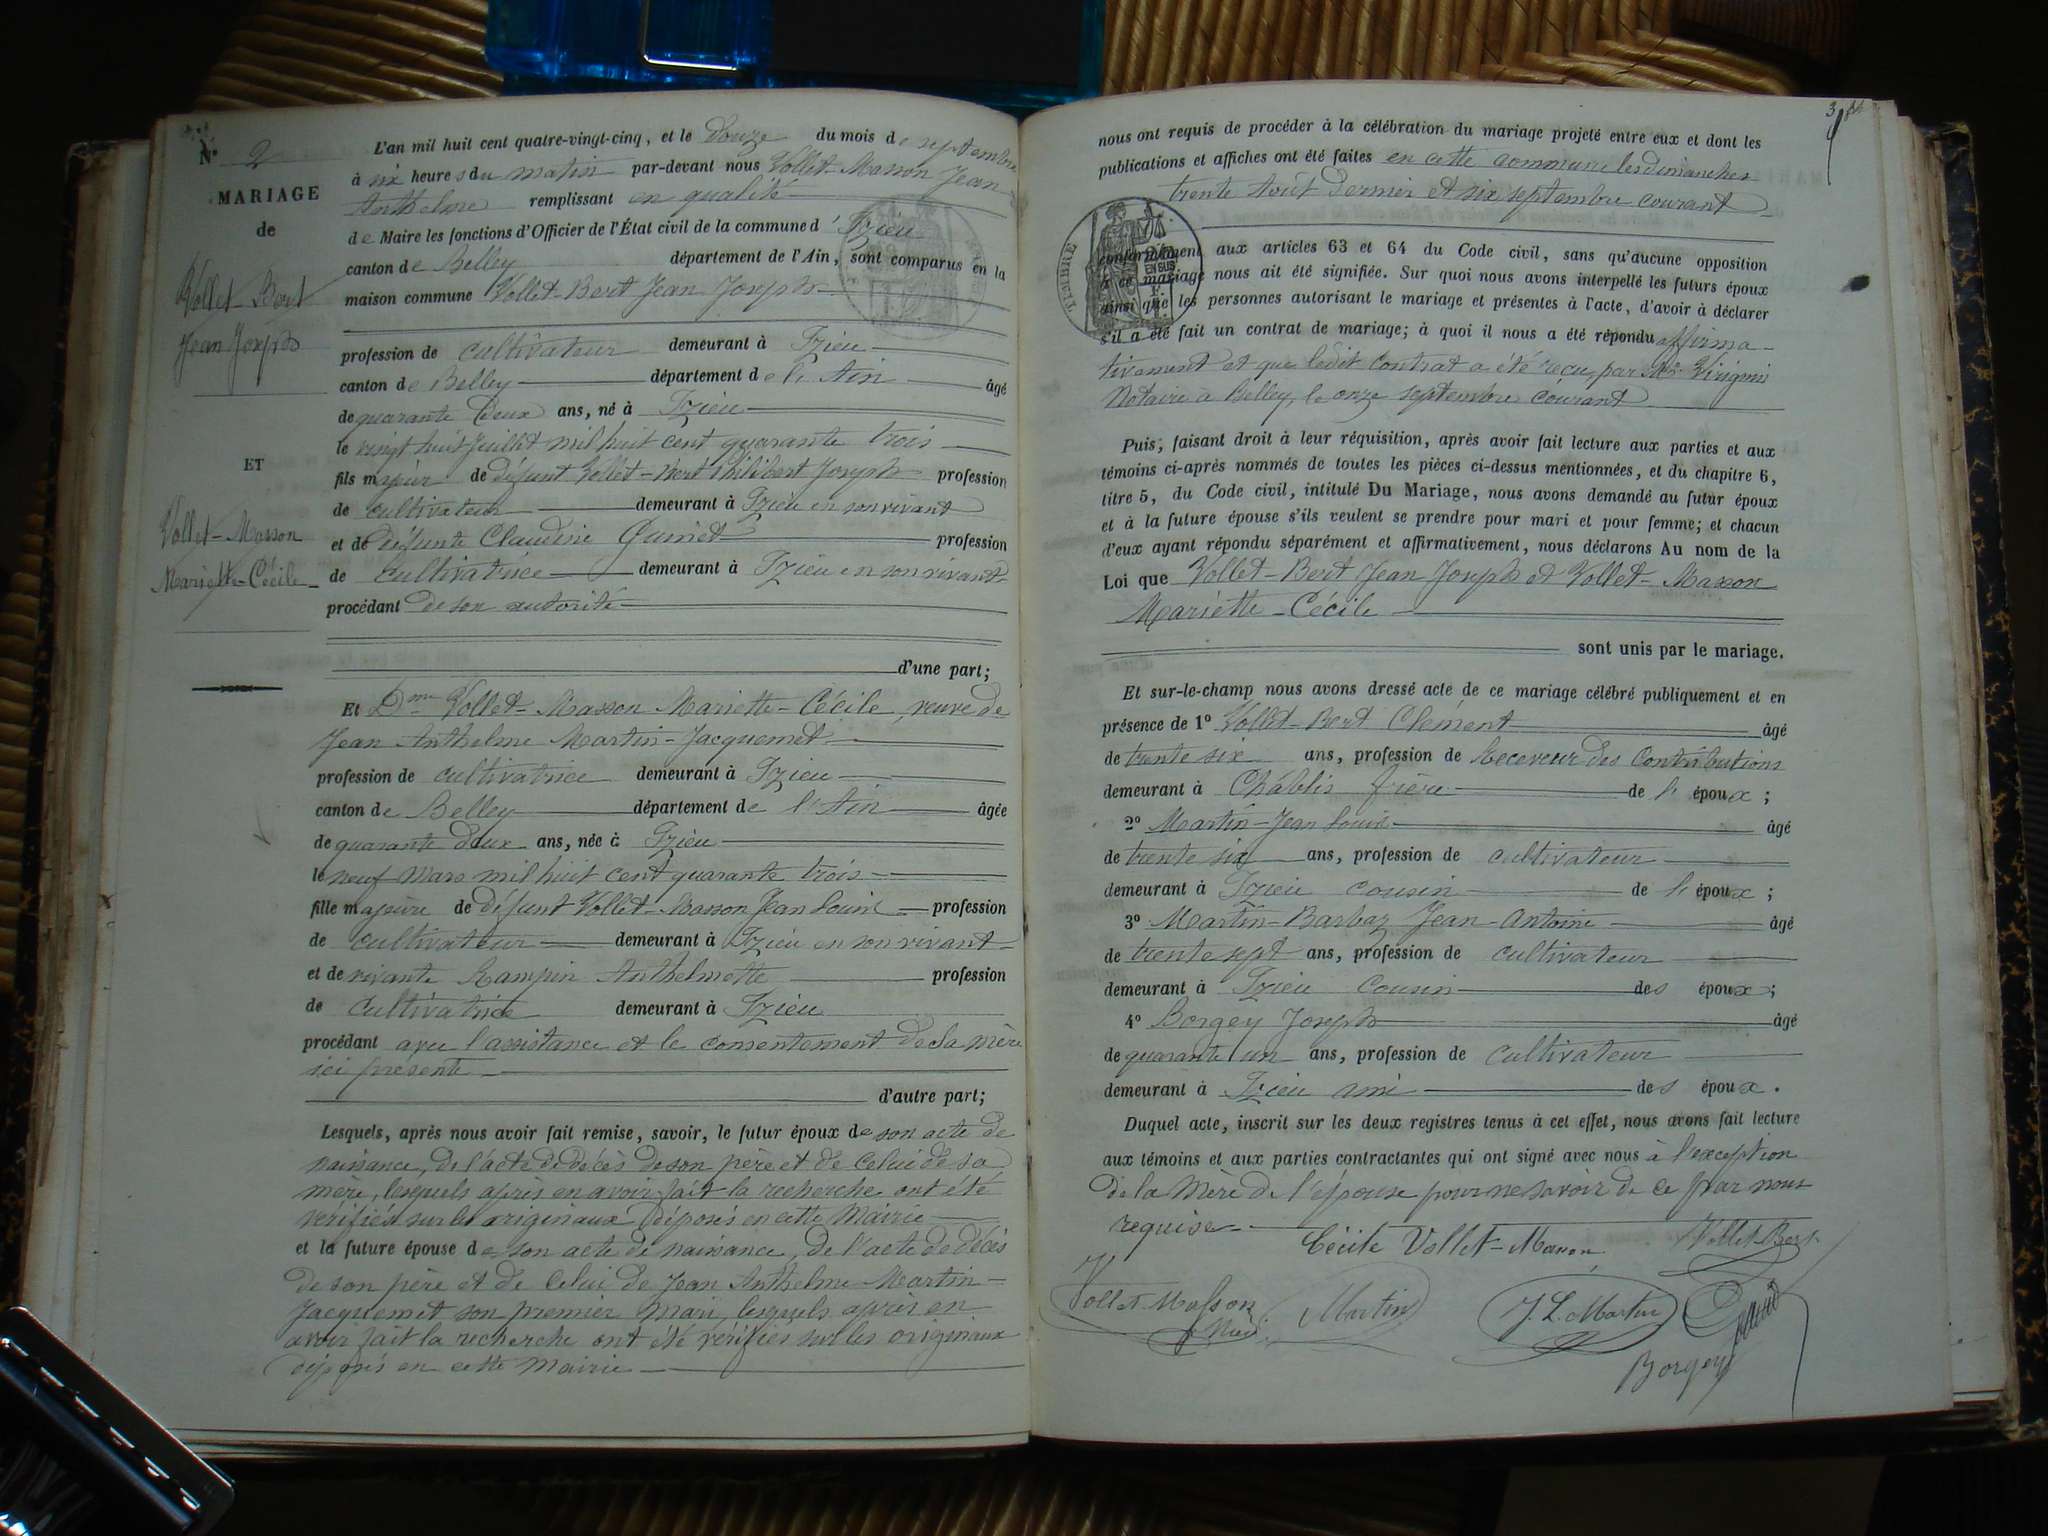 N° 2
MARIAGE
de
Vollet-Bert
Jean Joseph
ET
Vollet-Masson
Mariette-Cécile
L'an mil huit cent quatre-vingt-cinq, et le douze du mois de septembre
à six heures du matin par-devant nous Vollet-Masson Jean
Anthelme remplissant en qualité
de Maire les fonctions d'Officier de l'État civil de la commune d'Izieu
canton de Belley département de l'Ain, sont comparus en la
maison commune Vollet-Bert Jean Joseph
profession de cultivateur demeurant à Izieu
canton de Belley département de l'Ain âgé
de quarante deux ans, né à Izieu
le vingt huit juillet mil huit cent quarante trois
fils majeur de défunt Vollet-Bert Philibert Joseph profession
de cultivateur demeurant à Izieu en son vivant
et de défunte Claudine Quinet profession
de cultivatrice demeurant à Izieu en son vivant
procédant de son autorité
d'une part;
Et Dme Vollet-Masson Mariette-Cécile, veuve de
Jean Anthelme Martin-Jacquemet
profession de cultivatrice demeurant à Izieu
canton de Belley département de l'Ain âgée
de quarante deux ans, née à Izieu
le neuf mars mil huit cent quarante trois
fille majeure de défunt Vollet-Masson Jean Louis profession
de cultivateur demeurant à Izieu en son vivant
et de vivante Rampin Anthelmette profession
de cultivatrice demeurant à Izieu
procédant avec l'assistance et le consentement de sa mère
ici présente
d'autre part;
Lesquels, après nous avoir fait remise, savoir, le futur époux de son acte de
naissance, de l'acte de décès de son père et de celui de sa
mère, lesquels après en avoir fait la recherche ont été
vérifiés sur les originaux déposés en cette Mairie
et la future épouse de son acte de naissance, de l'acte de décès
de son père et de celui de Jean Anthelme Martin-
Jacquemet son premier mari, lesquels après en
avoir fait la recherche ont été vérifiés sur les originaux
déposés en cette Mairie
nous ont requis de procéder à la célébration du mariage projeté entre eux et dont les
publications et affiches ont été faites en cette commune les dimanches
trente Août dernier et six septembre courant
TIMBRE
conformément aux articles 63 et 64 du Code civil, sans qu'aucune opposition
à ce mariage nous ait été signifiée. Sur quoi nous avons interpellé les futurs époux
ainsi que les personnes autorisant le mariage et présentes à l'acte, d'avoir à déclarer
s'il a été fait un contrat de mariage; à quoi il nous a été répondu affirma-
tivement et que ledit contrat a été reçu par Me
Notaire à Belley, le onze septembre courant
Puis, faisant droit à leur réquisition, après avoir fait lecture aux parties et aux
témoins ci-après nommés de toutes les pièces ci-dessus mentionnées, et du chapitre 6,
titre 5, du Code civil, intitulé Du Mariage, nous avons demandé au futur époux
et à la future épouse s'ils veulent se prendre pour mari et pour femme; et chacun
d'eux ayant répondu séparément et affirmativement, nous déclarons Au nom de la
Loi que Vollet-Bert Jean Joseph et Vollet-Masson
Mariette-Cécile
sont unis par le mariage.
Et sur-le-champ nous avons dressé acte de ce mariage célébré publiquement et en
présence de 1° Vollet-Bert Clément âgé
de trente six ans, profession de Receveur des Contributions
demeurant à Chablis frère de l'époux;
2° Martin-Jean Louis âgé
de trente six ans, profession de cultivateur
demeurant à Izieu cousin de l'époux;
3° Martin-Barbaz Jean-Antoine âgé
de trente sept ans, profession de cultivateur
demeurant à Izieu Cousin des époux;
4° Borgey Joseph âgé
de quarante un ans, profession de cultivateur
demeurant à Izieu ami des époux.
Duquel acte, inscrit sur les deux registres tenus à cet effet, nous avons fait lecture
aux témoins et aux parties contractantes qui ont signé avec nous à l'exception
de la Mère de l'épouse pour ne savoir de ce par nous
requise
Cécile Vollet-Masson Vollet-Bert
Vollet-Masson Martin J. L. Martin
Borgey